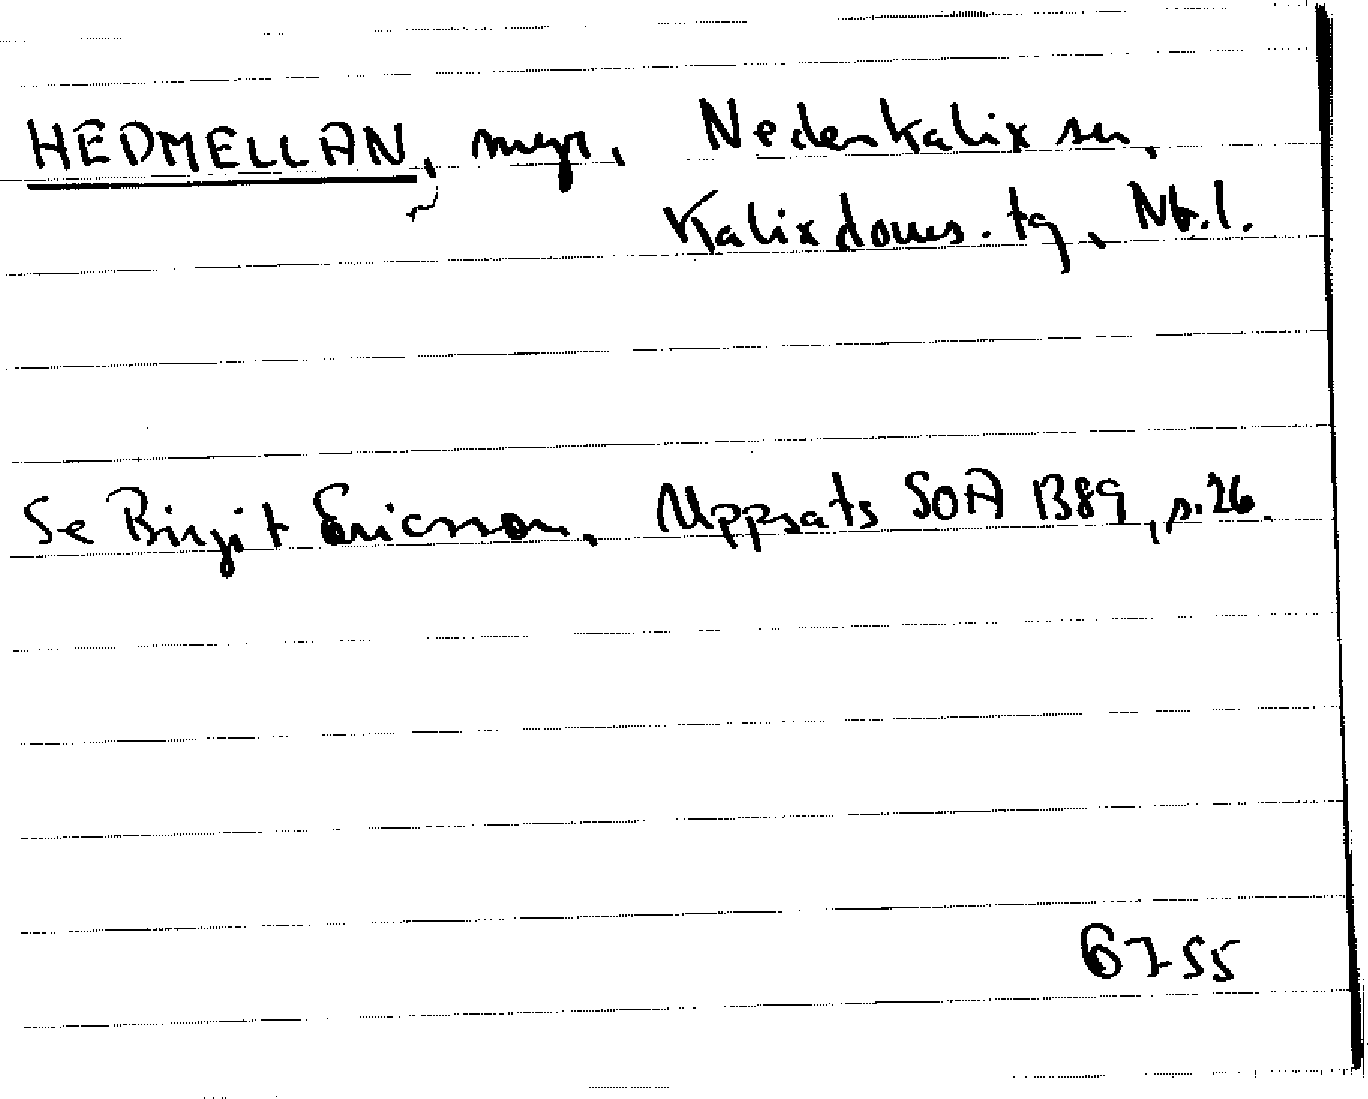 HEDMELLAN, myr, Nederkalix sn,
Kalix doms. tg, Nb.l.
Se Birgit Ericsson, Uppsats SOA B89, s. 26.
6755